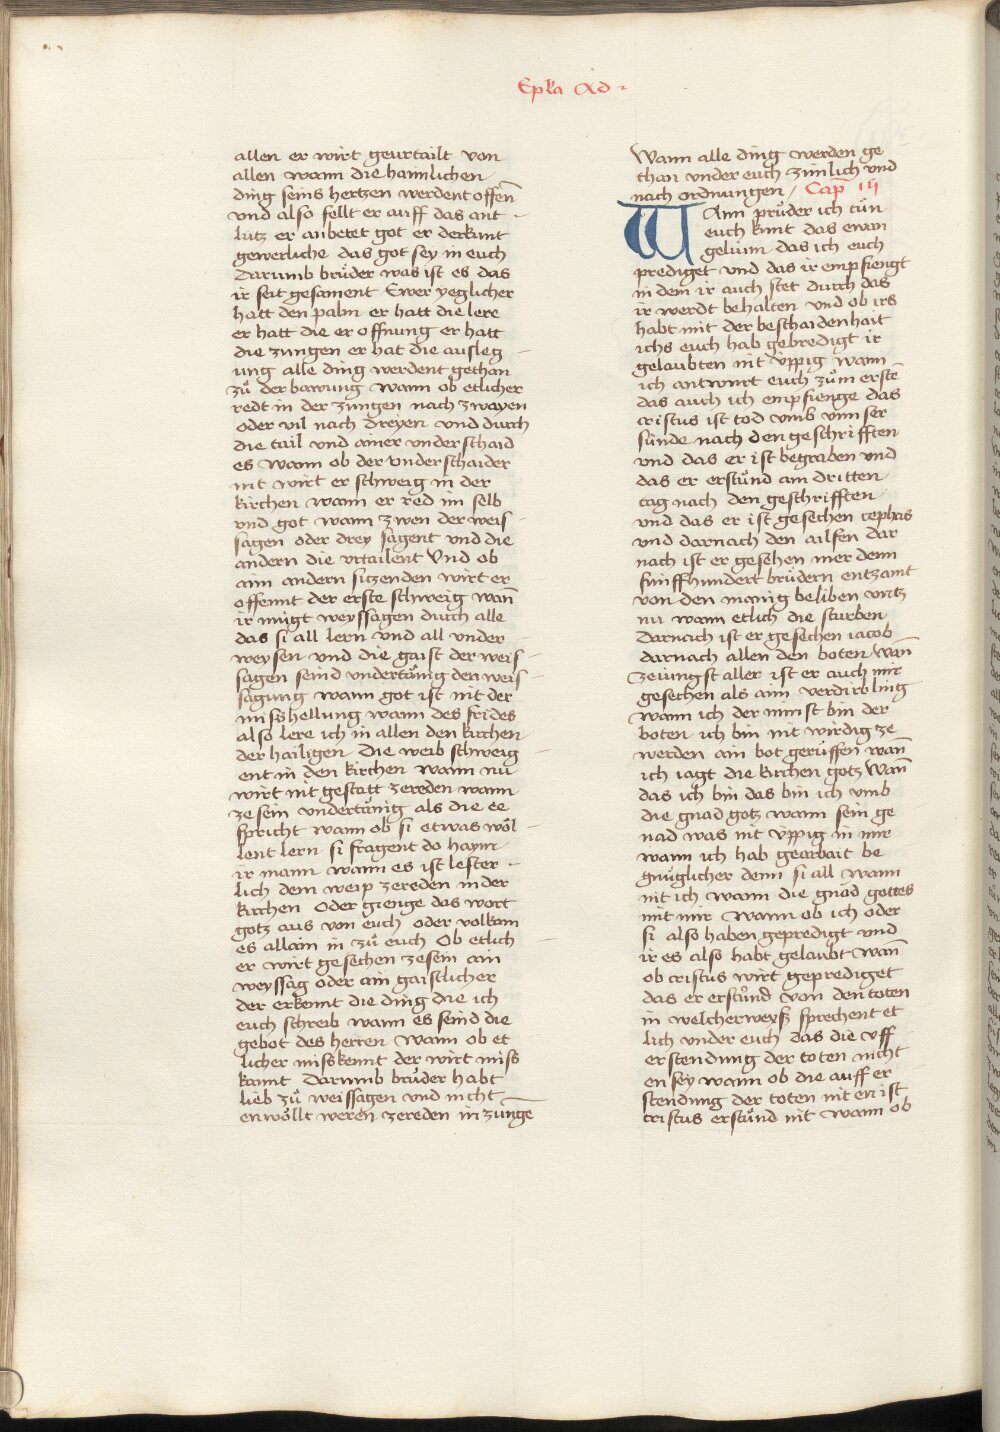 Epla Ad
allen er wirt geurtailt von
allen wann die haimlichen
ding seins hertzen werdent offen̄
vnd also fellt er auff das ant
lutz er anbetet got er derkunt
gewerliche das got sey in euch
Darumb brůder was ist es das
ir seit gesament Ewer yeglicher
hatt den psalm er hatt die lere
er hatt die eroffnung er hatt
die zungen er hat die ausleg
ung alle ding werdent gethan
zů der bawung wann ob etlicher
redt in der zungen nach zwayen
oder vil nach dreyen vnd durch
die tail vnd ainer vnderschaid
es wann ob der vnderschaider
nit wirt er schweig in der
kirchen wann er red im selb
vnd got wann zwen der weis
sagen oder drey sagent vnd die
andern die vrtailent Vnd ob
aim andern sitzenden wirt er
offennt der erste schweig wan̄
ir mügt weyssagen durch alle
das si all lern vnd all vnder
weysen vnd die gaist der weis
sagen seind vndertänig den weis
sagung wann got ist nit der
misshellung wann des frides
also lere ich in allen den kirchen
der hailigen Die weib schweig
ent in den kirchen wann nu
wirt nit gestatt zereden wann
ze sein vndertänig als die ee
spricht wann ob si etwas wöl
lent lern si fragent do haym
ir mann wann es ist lester
lich dem weip zereden in der
kirchen Oder gienge das wort
gotz aus von euch oder volkam
es allain in zů euch Ob etlich
er wirt gesechen zesein ain
weyssag oder ain gaistlicher
der erkennt die ding die ich
euch schreib wann es seind die
gebot des herren wann ob et
licher misskennt der wirt miss
kannt Darumb brůder habt
lieb zů weissagen vnd nicht
enwöllt weren zereden in zunge
Wann alle ding werden ge
than vnder euch zimlich vnd
nach ordnungen / Cap iij
WAnn průder ich tůn
euch kunt das ewan
gelium das ich euch
prediget vnd das ir empfiengt
in dem ir auch stet durch das
ir werdt behalten vnd ob irs
habt mit der beschaidenhait
ichs euch hab gebredigt ir
gelaubten nit üppig wann
ich antwurt euch zům erstē
das auch ich empfienge das
cristus ist tod vmb vnnser
sünde nach den geschrifften
vnd das er ist begraben vnd
das er erstůnd am dritten
tag nach den geschrifften
vnd das er ist gesechen cephas
vnd darnach den ailfen dar
nach ist er gesehen mer denn
fünffhundert brüdern entzamt
von den manig beliben vntz
nu wann etlich die sturben
Darnach ist er gesechen iacob
darnach allen den boten wan̄
zeiungst aller ist er auch mir
gesechen als aim verdirbling
wann ich der minst bin der
boten ich bin nit wirdig ze
werden ain bot gerüffen wan̄
ich iagt die kirchen gotz Wan̄
das ich bin das bin ich vmb
die gnad gotz wann sein ge
nad was nit üppig in mir
wann ich hab gearbait be
gnüglicher denn si all wann
nit ich wann die gnad gottes
mit mir wann ob ich oder
si also haben gepredigt vnd
ir es also habt gelaubt wan̄
ob cristus wirt geprediget
das er erstůnd von den toten
in welcherweyß sprechent et
lich vnder euch das die vff
erstendung der toten nicht
en sey wann ob die auff er
stendung der toten nit en ist
cristus erstůnd nit wann ob